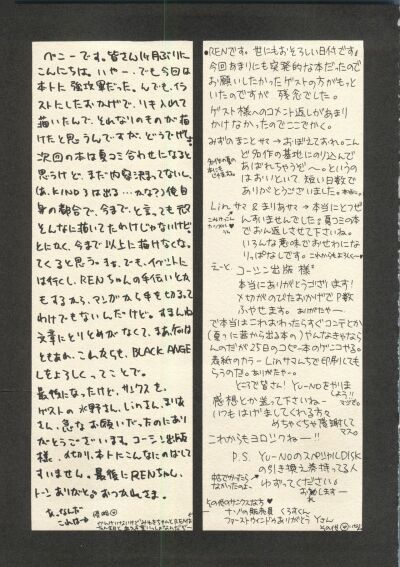 ペニーです。皆さん1ヶ月ぶりに
こんにちは。いやー、でも今回は
本トに強攻軍だった。んでも、イラ
ストにしたおかげで、リキ入れて
描いたんで、それなりのものが描
けたと思うんですが、どうでしょう
次回の本は夏コミ合わせになると
思うけど、まだ内容決まってないし、
は、KIND3は出…かな?)後自
身の都合で、今まで、と言っても
そんなに描いてたわけじゃないけど
とにかく、今まで以上に描けなくな
ってくると思う。でも、イベントに
は行くし、RENちゃんの手伝いとかも
もするから、マンガから手を切るって
わけでもないんだけど。すまんね
文章にとりとめがなくて、まあ何は
ともあれ、これからも、BLACK ANGE
Lをよろしくってことで。
最後になったけど、サンクスも、
ゲストの水野さん、Linさん、まりあ
さん、急なお願いだったのにあり
がとうございます。コーシン出版
様、〆切り、本トにこんなにのばして
すいません。最後にRENちゃん、
●RENです。世にもおそろしい日付です。
今回あまりにも突発的な本だったので
お願いしたかったゲストの方がもっと
いたのですが 残念でした。
ゲスト様へのコメント返しがあまり
かけなかったのでここでかく。
みずのまことサマ→おぼえておれ。こん
ど名作の墓地にのり込んで
あばれちゃうぞ〜。というの
はおいといて 短い日数で
ありがとうございました。
Linサマ & まりあサマ→本当にとつぜ
んすいませんでした。夏コミの本
でおん返しさせて下さいね。
いろんな意味でおせわにな
りっぱなしです。これからもよろしく
えーと コーシン出版 様
本当にありがとうございます!
〆切がのびたおかげでP数
ふやせます。 ありがたやー
で本当はこれおわったらすぐコンテとか
(夏に茜から出る本の)やんなきゃなら
んのだが25日のコピー本のゲンコやる。
表紙のカラー Linサマんちで印刷しても
らうのだ。ありがたやー。
ところで皆さん! YU-NOをやりま
しょう!!
感想とか送って下さいねー
いつもはげましてくれる方々
めちゃくちゃ感謝して
マス。
これからもヨロシクねー!!
P.S. YU-NOのスペシャルDISK
の引き換え券持ってる人
ゆずってください。
おねがい
しますー
その他のサンクスな方
ファーストウインドのありがとうYさん